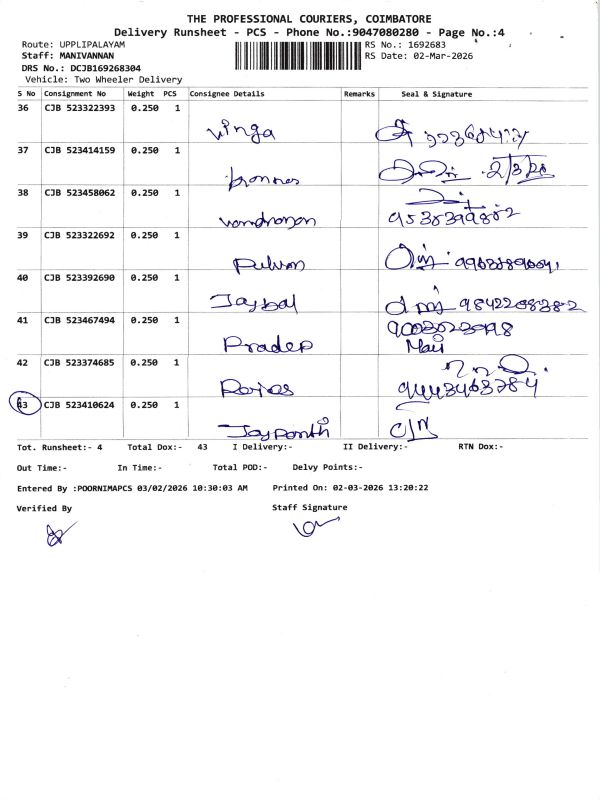 THE PROFESSIONAL COURIERS, COIMBATORE
Delivery Runsheet - PCS - Phone No.:9047080280 - Page No.:4
Route: UPPLIPALAYAM RS No.: 1692683
Staff: MANIVANNAN RS Date: 02-Mar-2026
DRS No.: DCJB169268304
Vehicle: Two Wheeler Delivery
S No Consignment No Weight PCS Consignee Details Remarks Seal & Signature
36 CJB 523322393 0.250 1
37 CJB 523414159 0.250 1
2/3/26
38 CJB 523458062 0.250 1
39 CJB 523322692 0.250 1
40 CJB 523392690 0.250 1
Jaybal 9842208382
41 CJB 523467494 0.250 1
Pradep
42 CJB 523374685 0.250 1
43 CJB 523410624 0.250 1
Tot. Runsheet:- 4 Total Dox:- 43 I Delivery:- II Delivery:- RTN Dox:-
Out Time:- In Time:- Total POD:- Delvy Points:-
Entered By :POORNIMAPCS 03/02/2026 10:30:03 AM Printed On: 02-03-2026 13:20:22
Verified By Staff Signature